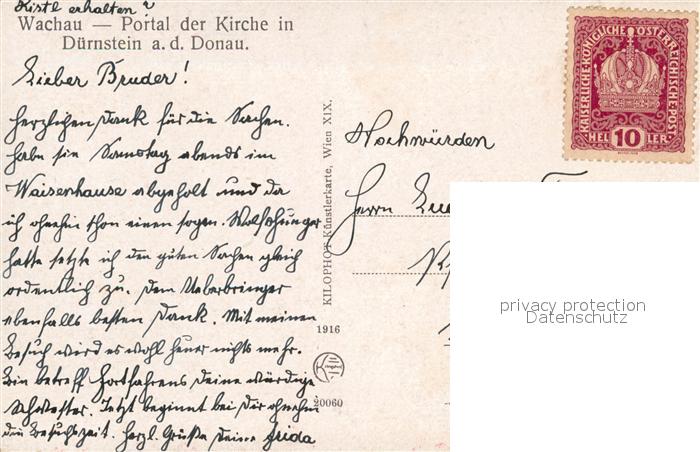 Kistl erhalten?
Wachau — Portal der Kirche in
Dürnstein a. d. Donau.
Lieber Bruder!
Herzlichen Dank für die Sachen.
habe sie Samstag abends im
Waisenhause abgeholt und da
ich ohnehin schon einen sogen. Wolfshunger
hatte setzte ich den guten Sachen gleich
ordentlich zu. Dem Ueberbringer
ebenfalls besten Dank. Mit meinem
Besuch wird es wohl heuer nichts mehr.
betreff Fortfahrens Deine würdige
Schwester. Jetzt beginnt bei Dir ohnehin
die Besuchszeit. Herzl. Grüße Deine Frida
KILOPHOT Künstlerkarte, Wien XIX.
1916
20060
KAISERLICHE KÖNIGLICHE ÖSTERREICHISCHE POST
HEL 10 LER
Hochwürden
Herrn
privacy protection
Datenschutz